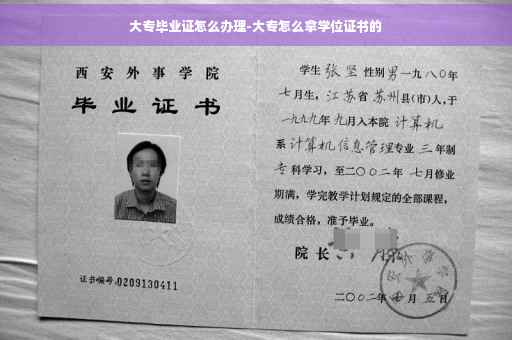 大专毕业证怎么办理-大专怎么拿学位证书的
西安外事学院
毕业证书
证书编号:0209130411
学生 张坚 性别 男 一九八〇年
七月生，江苏省 苏州县(市)人,于
一九九九年 九月入本院 计算机
系 计算机信息管理专业 三 年制
专 科学习，至二〇〇二年 七月修业
期满，学完教学计划规定的全部课程，
成绩合格，准予毕业。
院长
二〇〇二年 月 五日